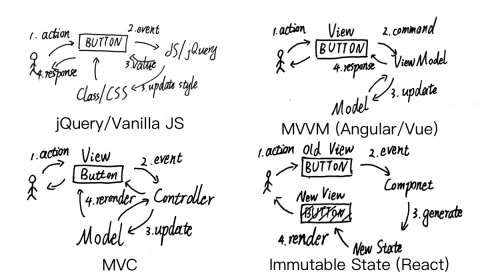 1. action
2. event
BUTTON
JS/jQuery
4. response
3. value
3. update style
Class/CSS
jQuery/Vanilla JS
1. action
View
2. command
BUTTON
4. response
View Model
3. update
Model
MVVM (Angular/Vue)
1. action
View
2. event
Button
4. rerender
Controller
3. update
Model
MVC
1. action
Old View
2. event
BUTTON
Componet
New View
BUTTON
3. generate
4. render
New State
Immutable State (React)